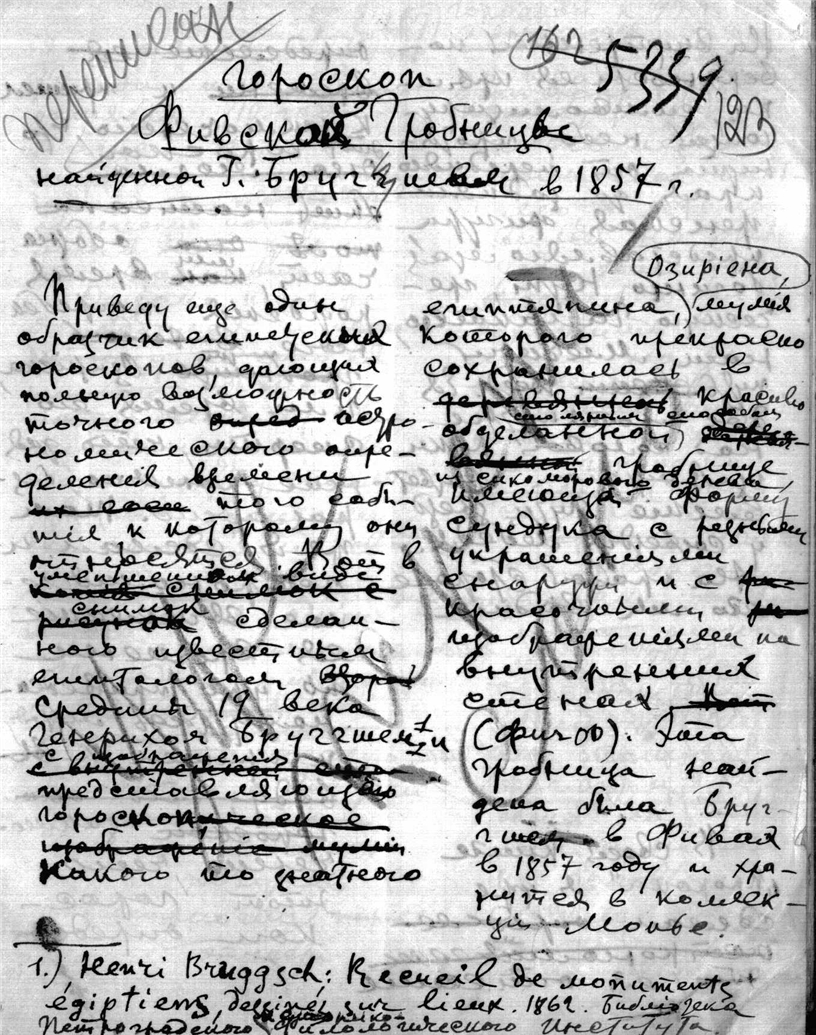 переписан
162
5339
123
Гороскоп
Фивской Гробницы
найденной Г. Бругшем в 1857 г.
Приведу еще один
образчик египетских
гороскопов, дающих
полную возможность
точного астро-
номическаго опре-
деления времени
того собы-
тія, к которому они
относятся. Вот в
уменьшенном виде
снимок
сделан-
ного известным
египтологом
средины 19 века
Генрихом Бругшем 1
с изображения
представляющаго
горос
какого то знатного
Озиріена,
египтянина, мумія
которого прекрасно
сохранилась в
красиво
обделанной
гробнице
из сикоморового дерева
имеющей форму
сундука с разными
украшеніями
снаружи и с
красочными
изображеніями на
внутренних
стенах
(фиг 00). Эта
гробница най-
дена была Бруг-
шем в Фивах
в 1857 году и хра-
нится в коллек-
ціи Монье.
1.) Henri Bruggsch: Recueil de monuments
égiptiens, dessinés sur lieux. 1862. Библіотека
Петроградского Филологического Института